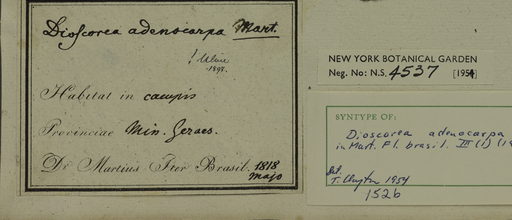 Dioscorea adenocarpa Mart.
! Uline
1898.
Habitat in campis
Provinciae Min. Geraes.
Dr Martius Iter Brasil. 1818
majo
NEW YORK BOTANICAL GARDEN
Neg. No: N.S. 4537 [1954]
SYNTYPE OF:
Dioscorea adenocarpa
in Mart. Fl. brasil. III (1) (18
Det.
T. Clayton 1954
152b